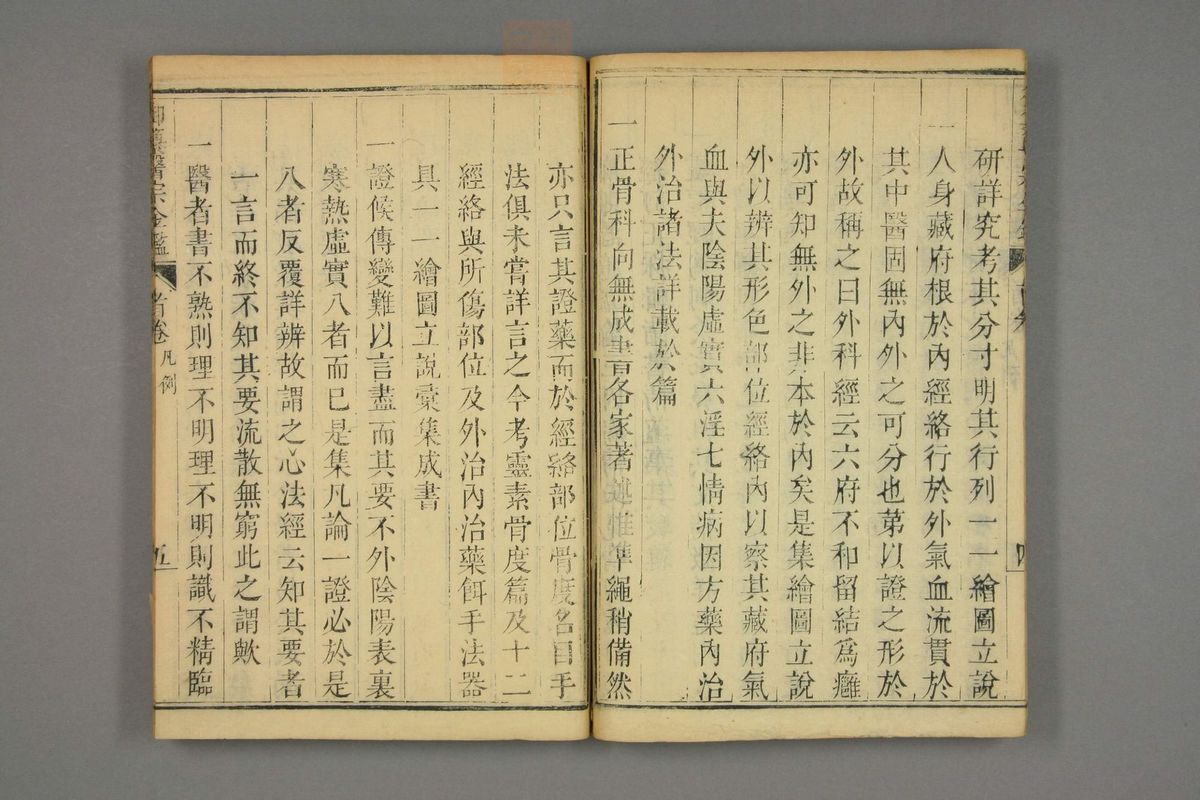 研詳究考其分寸明其行列一一繪圖立說
一人身藏府根於內經絡行於外氣血流貫於
其中醫固無內外之可分也第以證之形於
外故稱之曰外科經云六府不和留結爲癰
亦可知無外之非本於內矣是集繪圖立說
外以辨其形色部位經絡內以察其藏府氣
血與夫陰陽虛實六淫七情病因方藥內治
外治諸法詳載於篇
一正骨科向無成書各家著述惟準繩稍備然
亦只言其證藥而於經絡部位骨度名目手
法俱未嘗詳言之今考靈素骨度篇及十二
經絡與所傷部位及外治內治藥餌手法器
具一一繪圖立說彙集成書
一證候傳變難以言盡而其要不外陰陽表裏
寒熱虛實八者而已是集凡論一證必於是
八者反覆詳辨故謂之心法經云知其要者
一言而終不知其要流散無窮此之謂歟
一醫者書不熟則理不明理不明則識不精臨
御纂醫宗金鑑 首卷 凡例 五